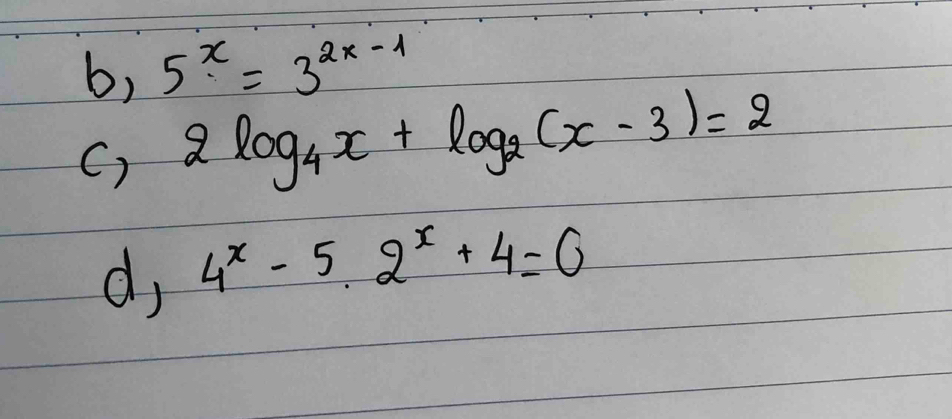 b, 5^x = 3^{2x - 1}
c, 2 log_4 x + log_2 (x - 3) = 2
d, 4^x - 5 . 2^x + 4 = 0